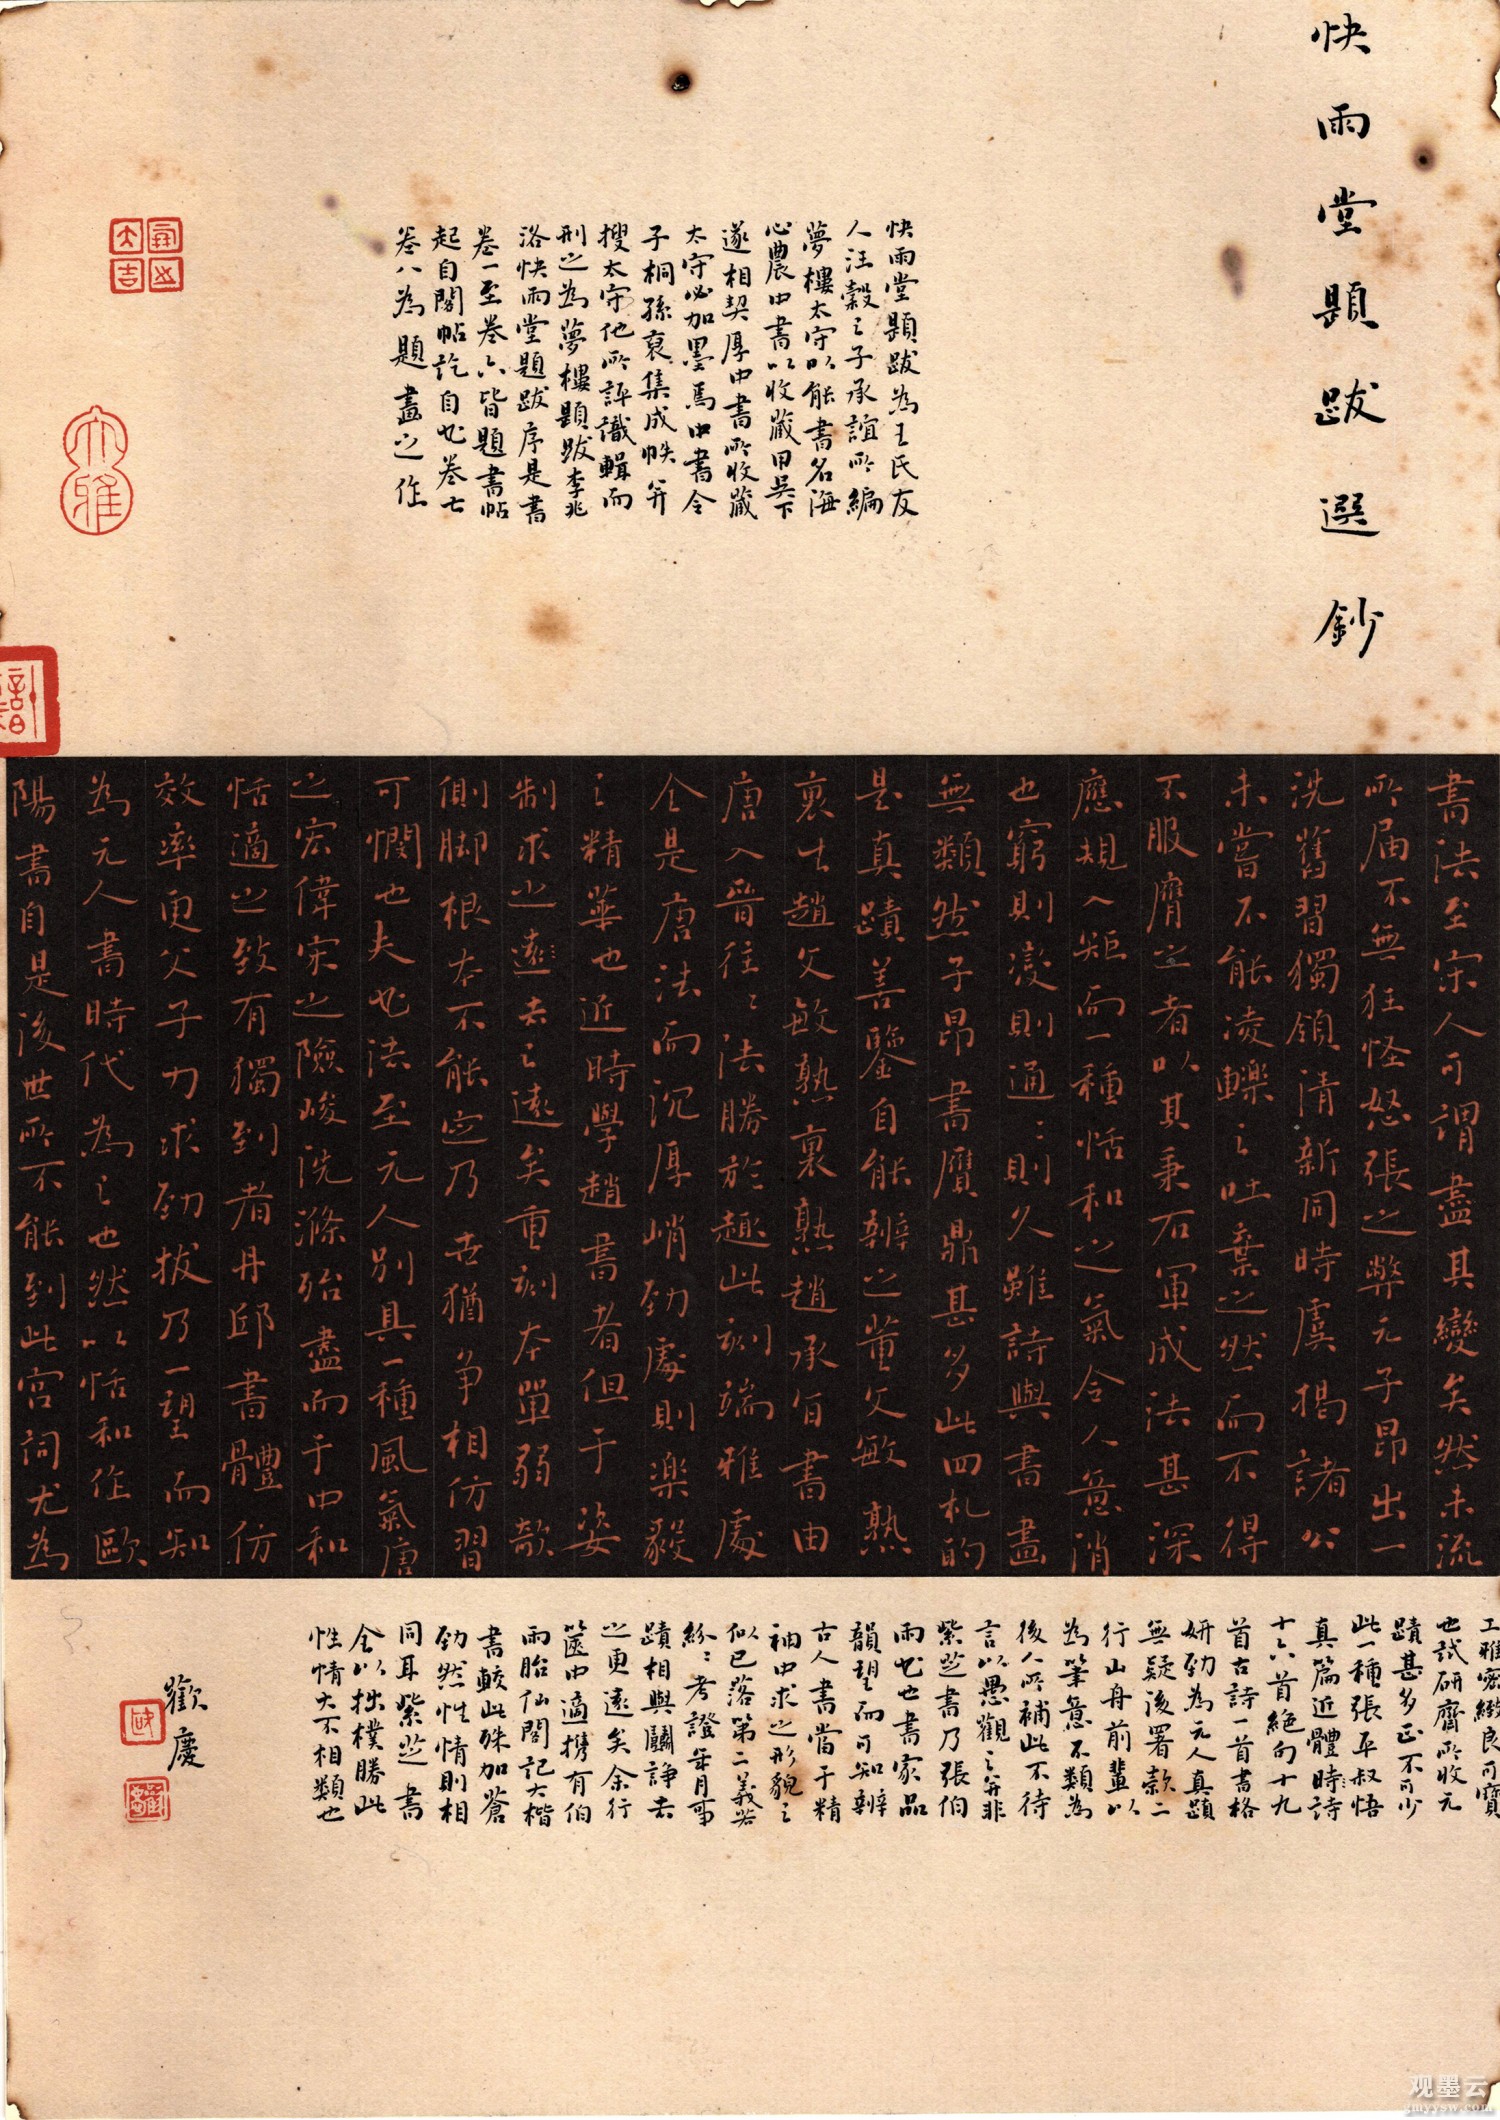 快雨堂題跋選鈔
快雨堂題跋為王氏友
人汪穀之子承誼所編
夢樓太守以能書名海
心農中書以收藏甲吳下
遂相契厚中書所收藏
太守必加墨焉中書令
子桐孫裒集成帙并
搜太守他所評識輯而
刑之為夢樓題跋李兆
洛快雨堂題跋序是書
卷一至卷六皆題書帖
起自閣帖訖自書卷七
卷八為題畫之作
書法至宋人可謂盡其變矣然末流
所屆不無狂怪怒張之弊元子昂出一
洗舊習獨領清新同時虞揭諸公
未嘗不能凌轢之吐棄之然而不得
不服膺之者以其秉右軍成法甚深
應規入矩而一種恬和之氣令人意消
也窮則變變則通通則久雖詩與書畫
無類然子昂書贋鼎甚多此四札的
是真蹟善鑒自能辨之董父敏熟
裏生趙父敏熟裏熟趙承旨書由
唐入晉往往法勝於趣此刻端雅處
全是唐法而沉厚峭勁處則樂毅
之精華也近時學趙書者但于姿
制求之遠去之遠矣重刻本單弱欹
側脚根本不能定乃世猶争相仿習
可憫也夫書法至元人別具一種風氣唐
之宏偉宋之險峻洗滌殆盡而于中和
恬適之致有獨到者丹邱書體仿
效率更父子力求勁拔乃一望而知
為元人書時代為之也然以恬和作歐
陽書自是後世所不能到此宮詞尤為
工雅密緻良可寶
也試研齋所收元
蹟甚多正不可少
此一種張平叔悟
真篇近體時詩
十六首絶句十九
首古詩一首書格
妍勁為元人真蹟
無疑後署款二
行山舟前輩以
為筆意不類為
後人所補此不待
言以愚觀之并非
紫芝書乃張伯
雨書也書家品
韻望而可知辨
古人書當于精
神中求之形貌之
似已落第二義若
紛紛考證年月事
蹟相與鬭諍去
之更遠矣余行
篋中適携有伯
雨胎仙閣記大楷
書較此殊加蒼
勁然性情則相
同耳紫芝書
全以拙樸勝此
性情大不相類也
歡慶
大吉
大雅
观墨云
gmyysw.com